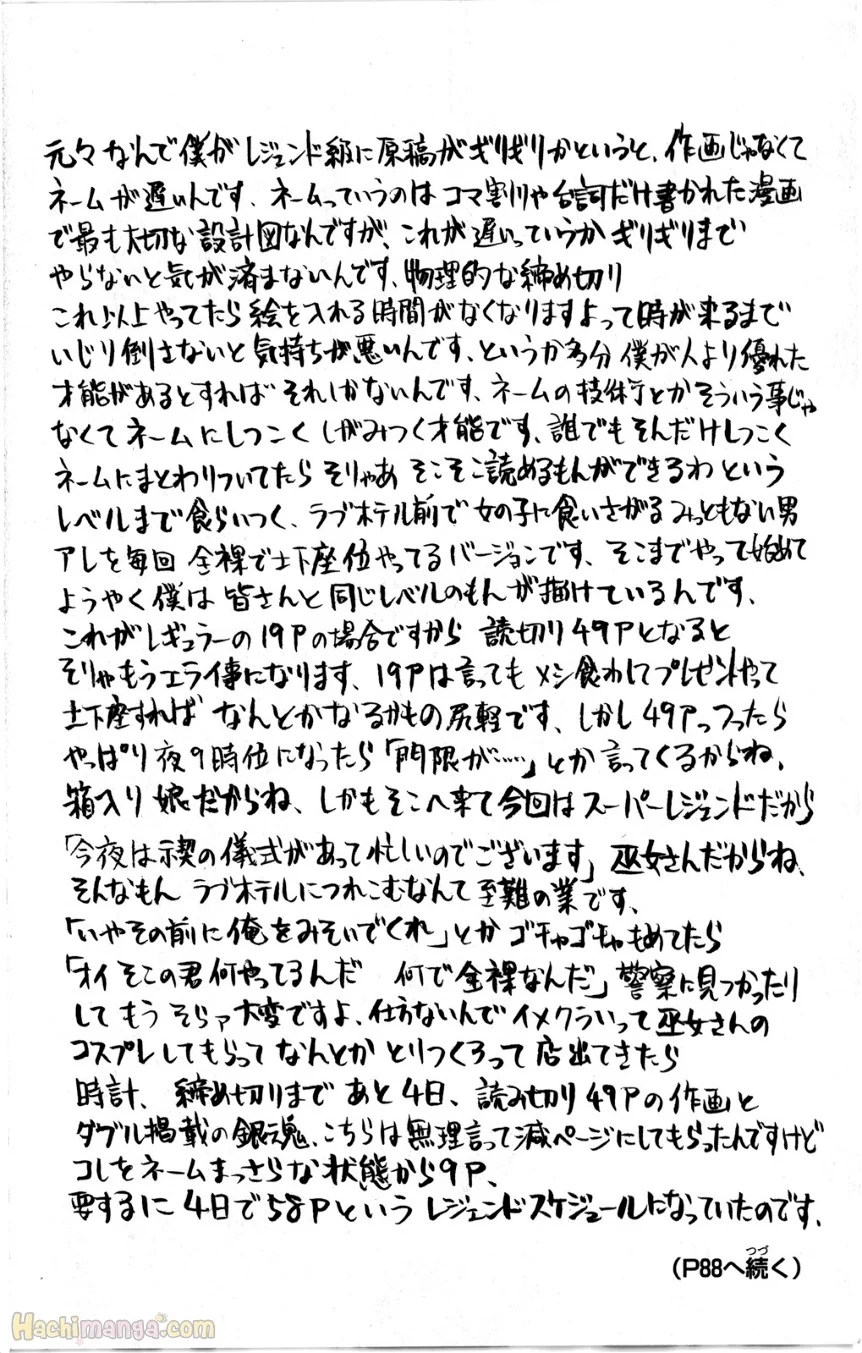 元々なんで僕がレジェンド級に原稿がギリギリかというと、作画じゃなくて
ネームが遅いんです、ネームっていうのはコマ割りや台詞だけ書かれた漫画
で最も大切な設計図なんですが、これが遅いっていうかギリギリまで
やらないと気が済まないんです、物理的な締め切り
これ以上やってたら絵を入れる時間がなくなりますよって時が来るまで
いじり倒さないと気持ちが悪いんです、というか多分僕が人より優れた
才能があるとすればそれしかないんです、ネームの技術とかそういう事じゃ
なくてネームにしつこくしがみつく才能です、誰でもそんだけしつこく
ネームにまとわりついてたらそりゃあそこそこ読めるもんができるわという
レベルまで食らいつく、ラブホテル前で女の子に食いさがるみっともない男
アレを毎回全裸で土下座位やってるバージョンです、そこまでやって始めて
ようやく僕は皆さんと同じレベルのもんが描けているんです、
これがレギュラーの19Pの場合ですから読切り49Pとなると
そりゃもうエライ事になります、19Pは言ってもメシ食わしてプレゼントやって
土下座すればなんとかなるかもの尻軽です、しかし49Pっつったら
やっぱり夜9時位になったら「門限が……」とか言ってくるからね、
箱入り娘だからね、しかもそこへ来て今回はスーパーレジェンドだから
「今夜は禊の儀式があって忙しいのでございます」巫女さんだからね、
そんなもんラブホテルにつれこむなんて至難の業です、
「いやその前に俺をみそいでくれ」とかゴチャゴチャもめてたら
「オイそこの君何やってるんだ　何で全裸なんだ」警察に見つかったり
してもうそらァ大変ですよ、仕方ないんでイメクラいって巫女さんの
コスプレしてもらってなんとかとりつくろって店出てきたら
時計、締め切りまであと4日、読み切り49Pの作画と
ダブル掲載の銀魂、こちらは無理言って減ページにしてもらったんですけど
コレをネームまっさらな状態から9P、
要するに4日で58Pというレジェンドスケジュールになっていたのです、
(P88へ続く)
つづ
Hachimanga.com